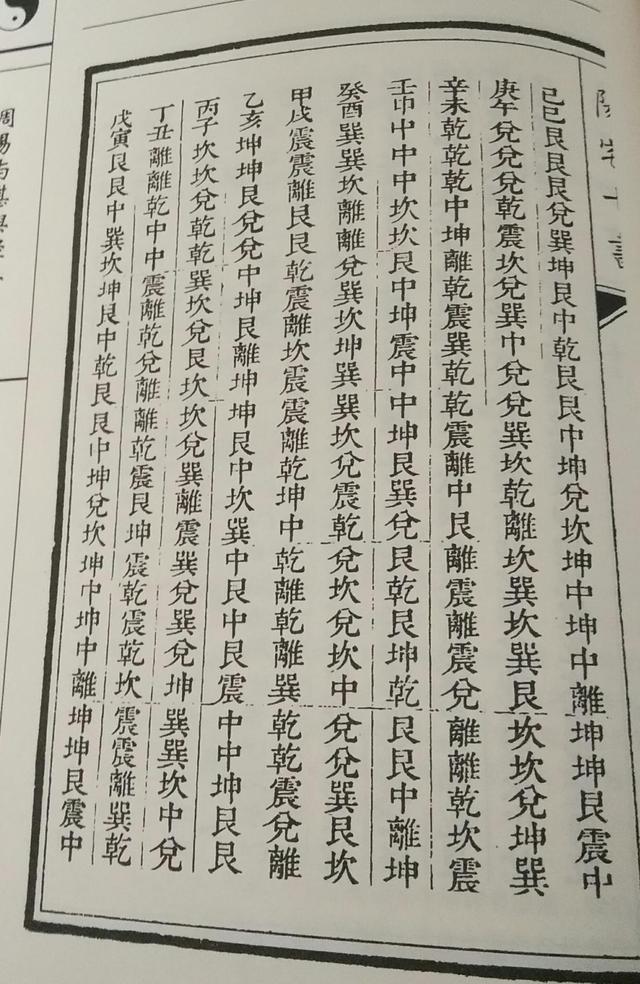 陽宅十書
己巳艮艮艮兌巽坤艮中乾艮艮中坤兌坎坤中坤中離坤坤艮震中
庚午兌兌兌乾震坎兌巽中兌兌巽坎乾離坎巽坎巽艮坎坎兌坤巽
辛未乾乾乾中坤離乾震巽乾乾震離中艮離震離震兌離離乾坎震
壬申中中中坎坎艮中坤震中中坤艮巽兌艮乾艮坤乾艮艮中離坤
癸酉巽巽坎離離兌巽坎坤巽巽坎兌震乾兌坎兌坎中兌兌巽艮坎
甲戌震震離艮艮乾震離坎震震離乾坤中乾離乾離巽乾乾震兌離
乙亥坤坤艮兌兌中坤艮離坤坤艮中坎巽中艮中艮震中中坤艮艮
丙子坎坎兌乾乾巽坎兌艮坎坎兌巽離震巽兌巽兌坤巽巽坎中兌
丁丑離離乾中中震離乾兌離離乾震艮坤震乾震乾坎震震離巽乾
戊寅艮艮中巽坎坤艮中乾艮艮中坤兌坎坤中坤中離坤坤艮震中
周易与堪輿